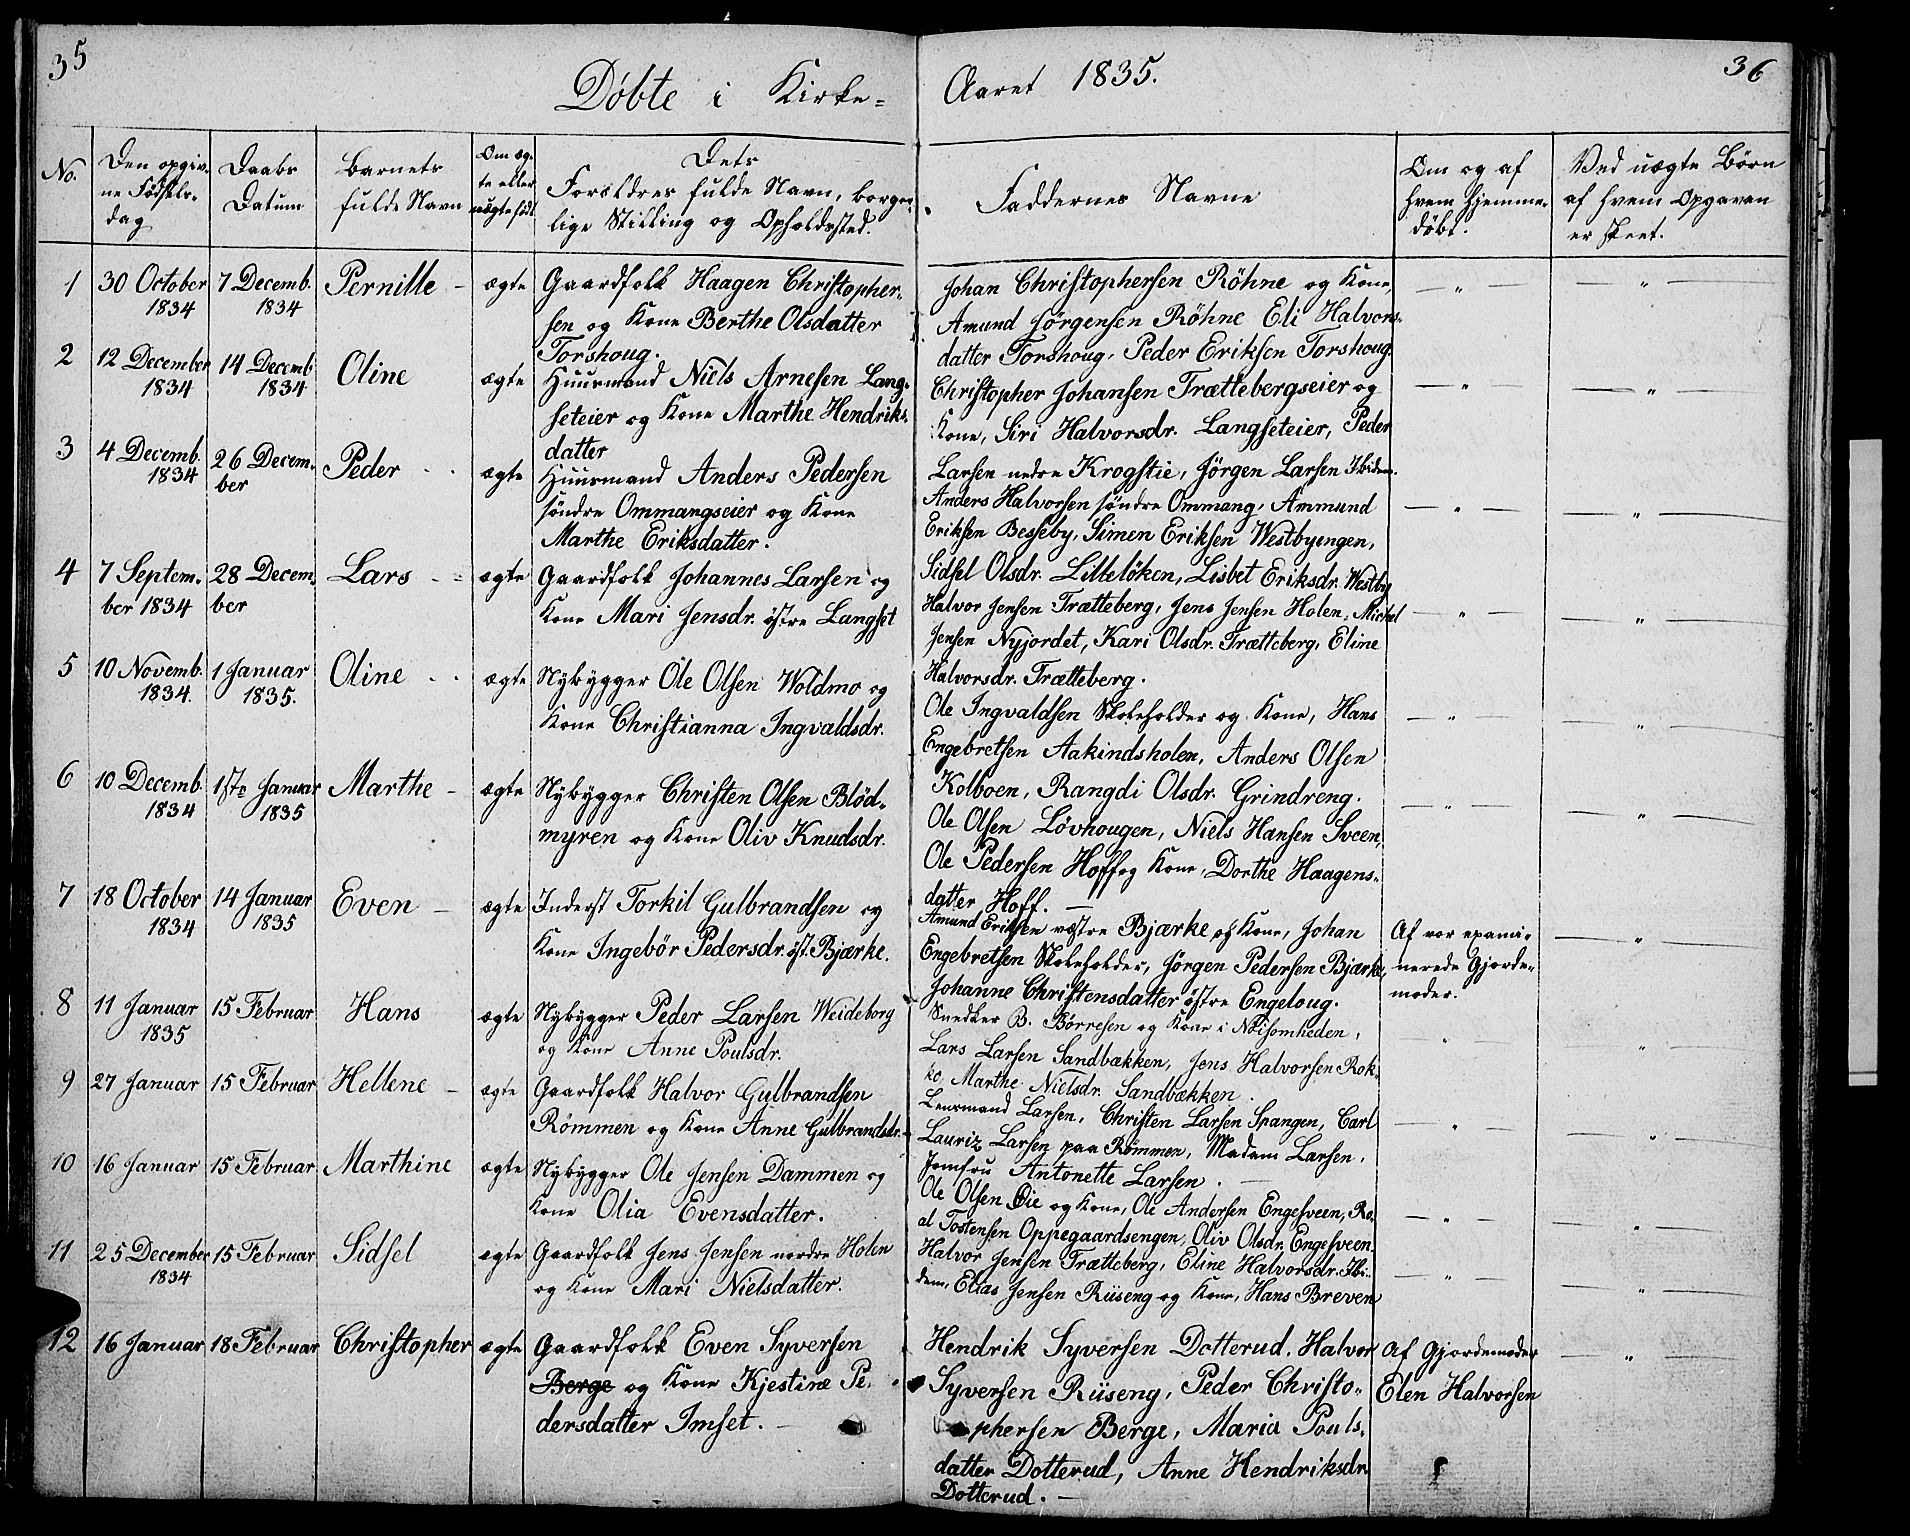 35
36
Døbte i Kirke-
Aaret 1835.
No.
Den opgiv-
ne Fødsels-
dag
Daabs
Datum
Barnets
fulde Navn
Om æg-
te eller
uægte født
Dets
Forældres fulde Navn, borger-
lige Stilling og Opholdssted.
Faddernes Navne
Om og af
hvem hjemme-
døbt.
Ved uægte Børn
af hvem Opgaven
er skeet.
1
30 October
1834
7 Decemb.
1834
Pernille
ægte
Gaardfolk Haagen Christopher-
sen og Kone Berthe Olsdatter
Torshoug.
Johan Christophersen Röhne og Kone,
Amund Jörgensen Röhne Eli Halvors-
datter Torshoug, Peder Eriksen Torshoug.
2
12 December
1834
14 Decemb
1834
Oline
ægte
Huusmand Niels Arnesen Lang-
seteier og Kone Marthe Hendriks-
datter
Christopher Johansen Trættebergseier og
Kone, Siri Halvorsdr. Langseteier, Peder
Larsen nedre Krogstie, Jörgen Larsen Ibidem.
3
4 Decemb.
1834
26 Decem-
ber
Peder
ægte
Huusmand Anders Pedersen
söndre Ommangseier og Kone
Marthe Eriksdatter.
Anders Halvorsen söndre Ommang, Ammund
Eriksen Besseby, Simen Eriksen Westbyengen,
Sidsel Olsdr. Lillelöken, Lisbet Eriksdr. Westby
4
7 Septem-
ber 1834
28 Decem-
ber
Lars
ægte
Gaardfolk Johannes Larsen og
Kone Mari Jensdr. østre Langset
Halvor Jensen Trætteberg, Jens Jensen Holen, Michel
Jensen Nyjordet, Kari Olsdr. Trætteberg, Eline
Halvorsdr. Trætteberg.
5
10 Novemb.
1834.
1 Januar
1835.
Oline
ægte
Nybygger Ole Olsen Woldmo og
Kone Christianna Ingvaldsdr.
Ole Ingvaldsen Skoleholder og Kone, Hans
Engebretsen Aakindsholen, Anders Olsen
Kolboen, Rangdi Olsdr. Grindreng.
6
10 Decemb.
1834
1ste Januar
1835
Marthe
ægte
Nybygger Christen Olsen Blöd-
myren og Kone Oliv Knudsdr.
Ole Olsen Lövhougen, Niels Hansen Sveen,
Ole Pedersen Hoff og Kone, Dorthe Haagens-
datter Hoff.
7
18 October
1834
14 Januar
1835
Even
ægte
Inderst Torkil Gulbrandsen og
Kone Ingebör Pedersdr. öst. Bjærke.
Amund Eriksen vestre Bjærke og Kone, Johan
Engebretsen Skoleholder, Jörgen Pedersen Bjærke,
Johanne Christensdatter östre Engeloug.
Af vor exami-
nerede Gjorde-
moder.
8
11 Januar
1835
15 Februar
Hans
ægte
Nybygger Peder Larsen Weideborg
og Kone Anne Poulsdr.
Snedker B. Börresen og Kone i Nöisomheden,
Lars Larsen Sandbækken, Jens Halvorsen Rok-
ke, Marthe Nielsdr. Sandbækken.
9
27 Januar
15 Februar
Hellene
ægte
Gaardfolk Halvor Gulbrandsen
Römmen og Kone Anne Gulbrandsdr.
Lensmand Larsen, Christen Larsen Spangen, Carl
Lauriz Larsen paa Römmen, Madam Larsen,
Jomfru Antonette Larsen.
10
16 Januar
15 Februar
Marthine
ægte
Nybygger Ole Jensen Dammen og
Kone Olia Evensdatter.
Ole Olsen Öie og Kone, Ole Andersen Engesveen, Ro-
al Tostensen Oppegaardsengen, Oliv Olsdr. Engesveen.
11
25 December
1834
15 Februar
Sidsel
ægte
Gaardfolk Jens Jensen nordre Holen
og Kone Mari Nielsdatter.
Halvor Jensen Trætteberg, Eline Halvorsdr. Ibi-
dem, Elias Jensen Riiseng og Kone, Hans Breven
12
16 Januar
18 Februar
Christopher
ægte
Gaardfolk Even Syversen
Berge og Kone Kjestine Pe-
dersdatter Imset.
Hendrik Syversen Dotterud, Halvor
Syversen Riiseng, Peder Christo-
phersen Berge, Maria Pouls-
datter Dotterud, Anne Hendriksdr.
Dotterud.
Af Gjordemoder
Elen Halvorsen